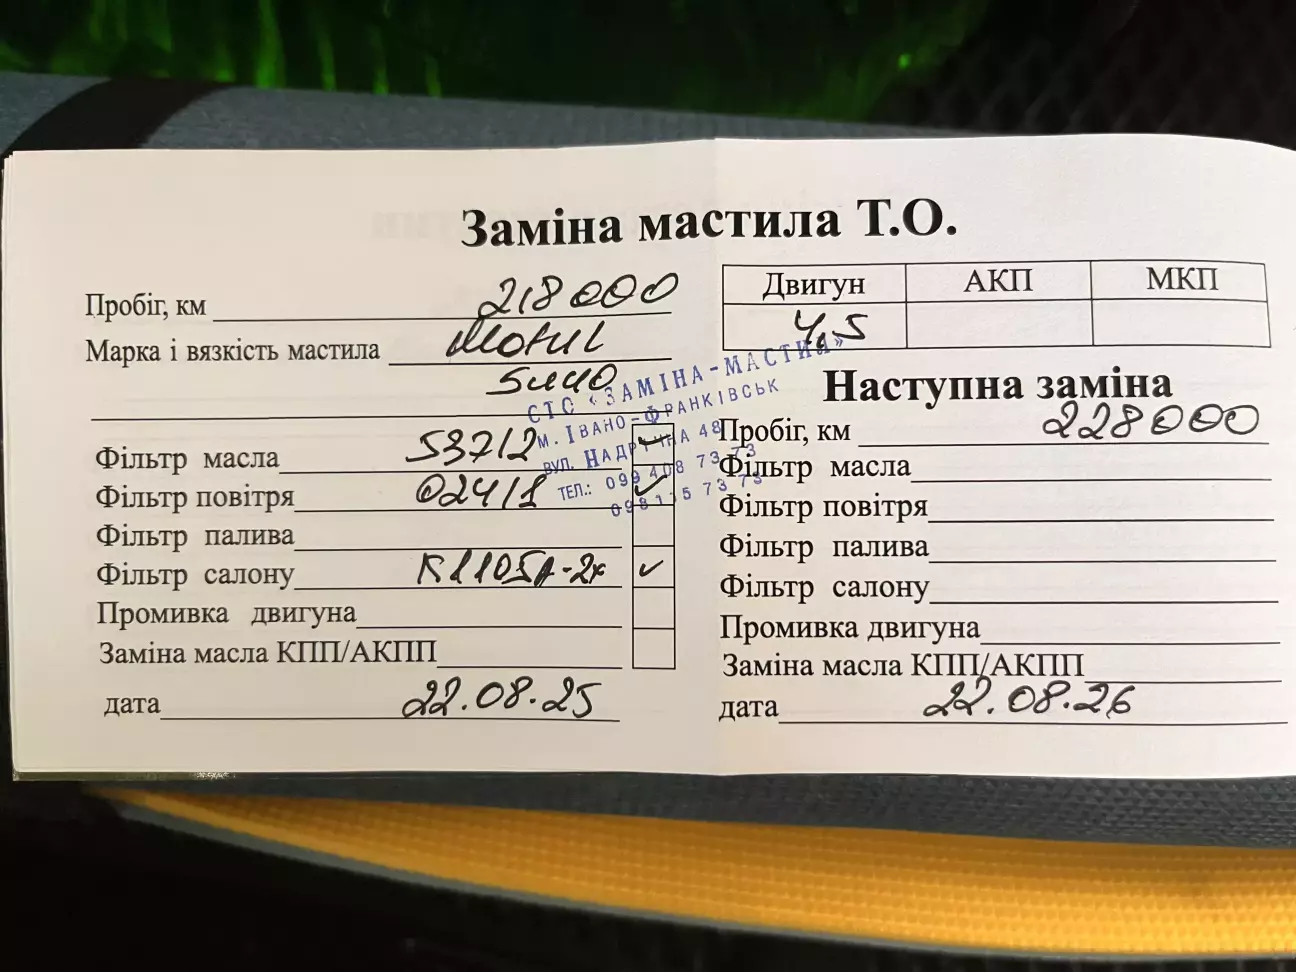 Заміна мастила Т.О.
Пробіг, км 218000
Марка і вязкість мастила Motul
5w40
Фільтр масла 537/2
Фільтр повітря 024/1
Фільтр палива
Фільтр салону K1105A-2x
Промивка двигуна
Заміна масла КПП/АКПП
дата 22.08.25
СТО «ЗАМІНА-МАСТИЛ»
м. ІВАНО-ФРАНКІВСЬК
ВУЛ. НАДРІЧНА 48
ТЕЛ.: 099 408 73 73
098 115 73 73
Двигун АКП МКП
4,5
Наступна заміна
Пробіг, км 228000
Фільтр масла
Фільтр повітря
Фільтр палива
Фільтр салону
Промивка двигуна
Заміна масла КПП/АКПП
дата 22.08.26